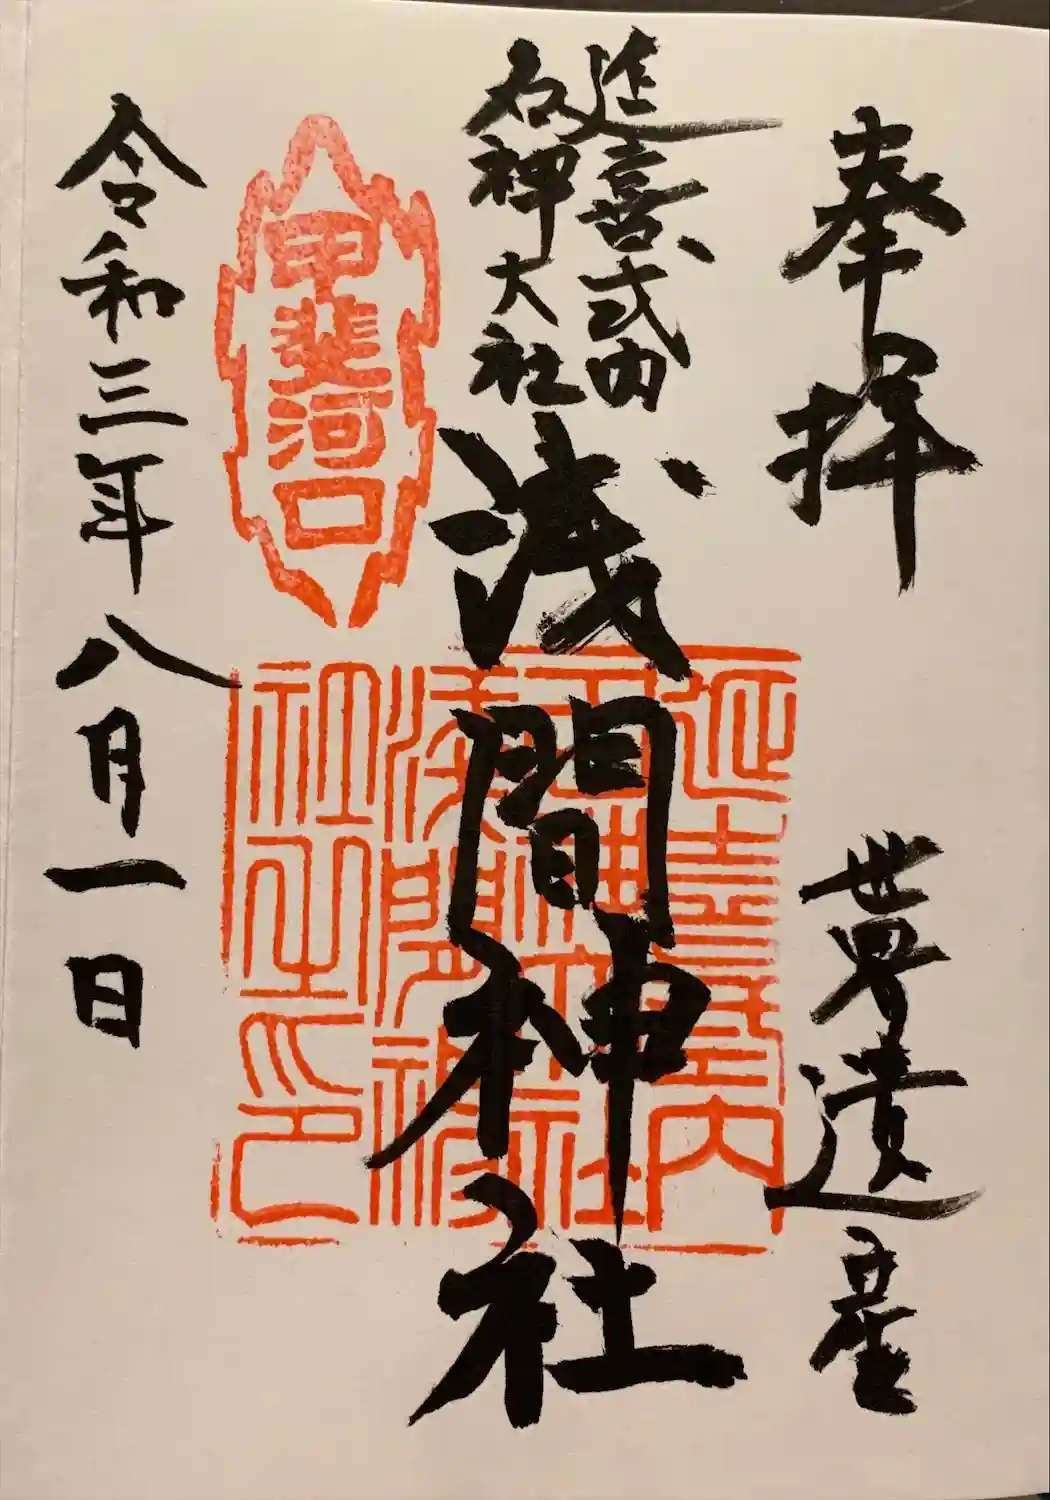 奉拝
世界遺産
延喜式内
名神大社
浅間神社
甲斐河口
延喜式内
名神大社
浅間神
社之印
令和三年八月一日